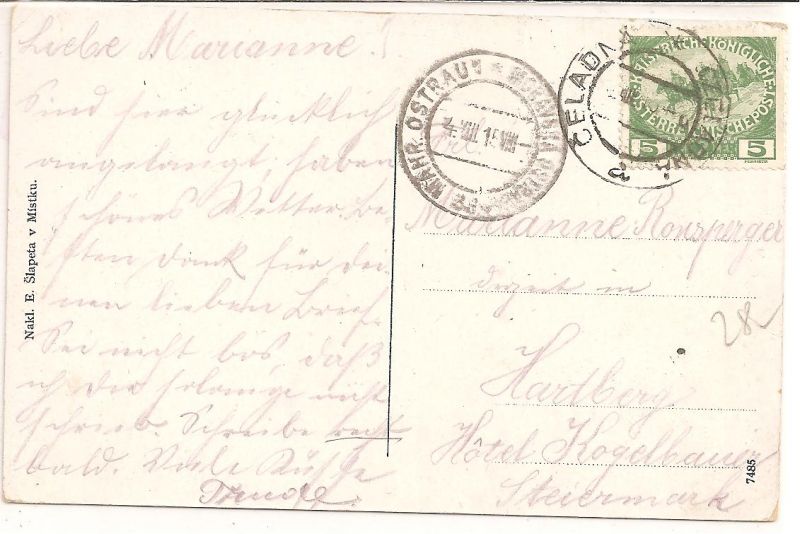 Liebe Marianne!
Sind hier glücklich
angelangt, haben
schönes Wetter. Be-
sten Dank für dei-
nen lieben Brief.
Sei nicht bös, daß
ich dir solange nicht
schrieb. Schreibe recht
bald. Viele Küsse
Trude.
Nakl. E. Šlapeta v Místku.
MÄHR. OSTRAU
4 VIII 15 VIII
ČELADNA
5 5
Frl.
Marianne Ronsperger
derzeit in
Hartberg
Hôtel Kogelbauer
Steiermark
282
7485